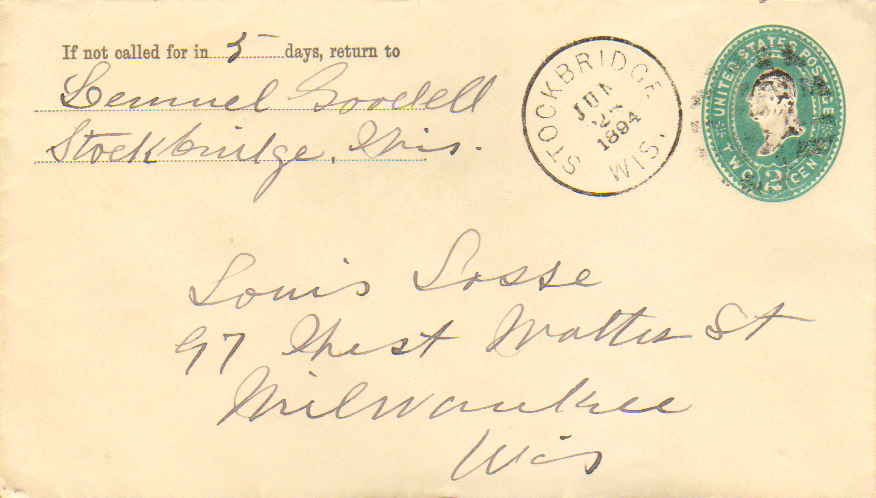 If not called for in 5 days, return to
Lemuel Goodell
Stockbridge, Wis.
STOCKBRIDGE
JUN
1894
WIS.
UNITED STATES POSTAGE
TWO 2 CENTS
Louis Losse
97 West Watter St
Milwaukee
Wis